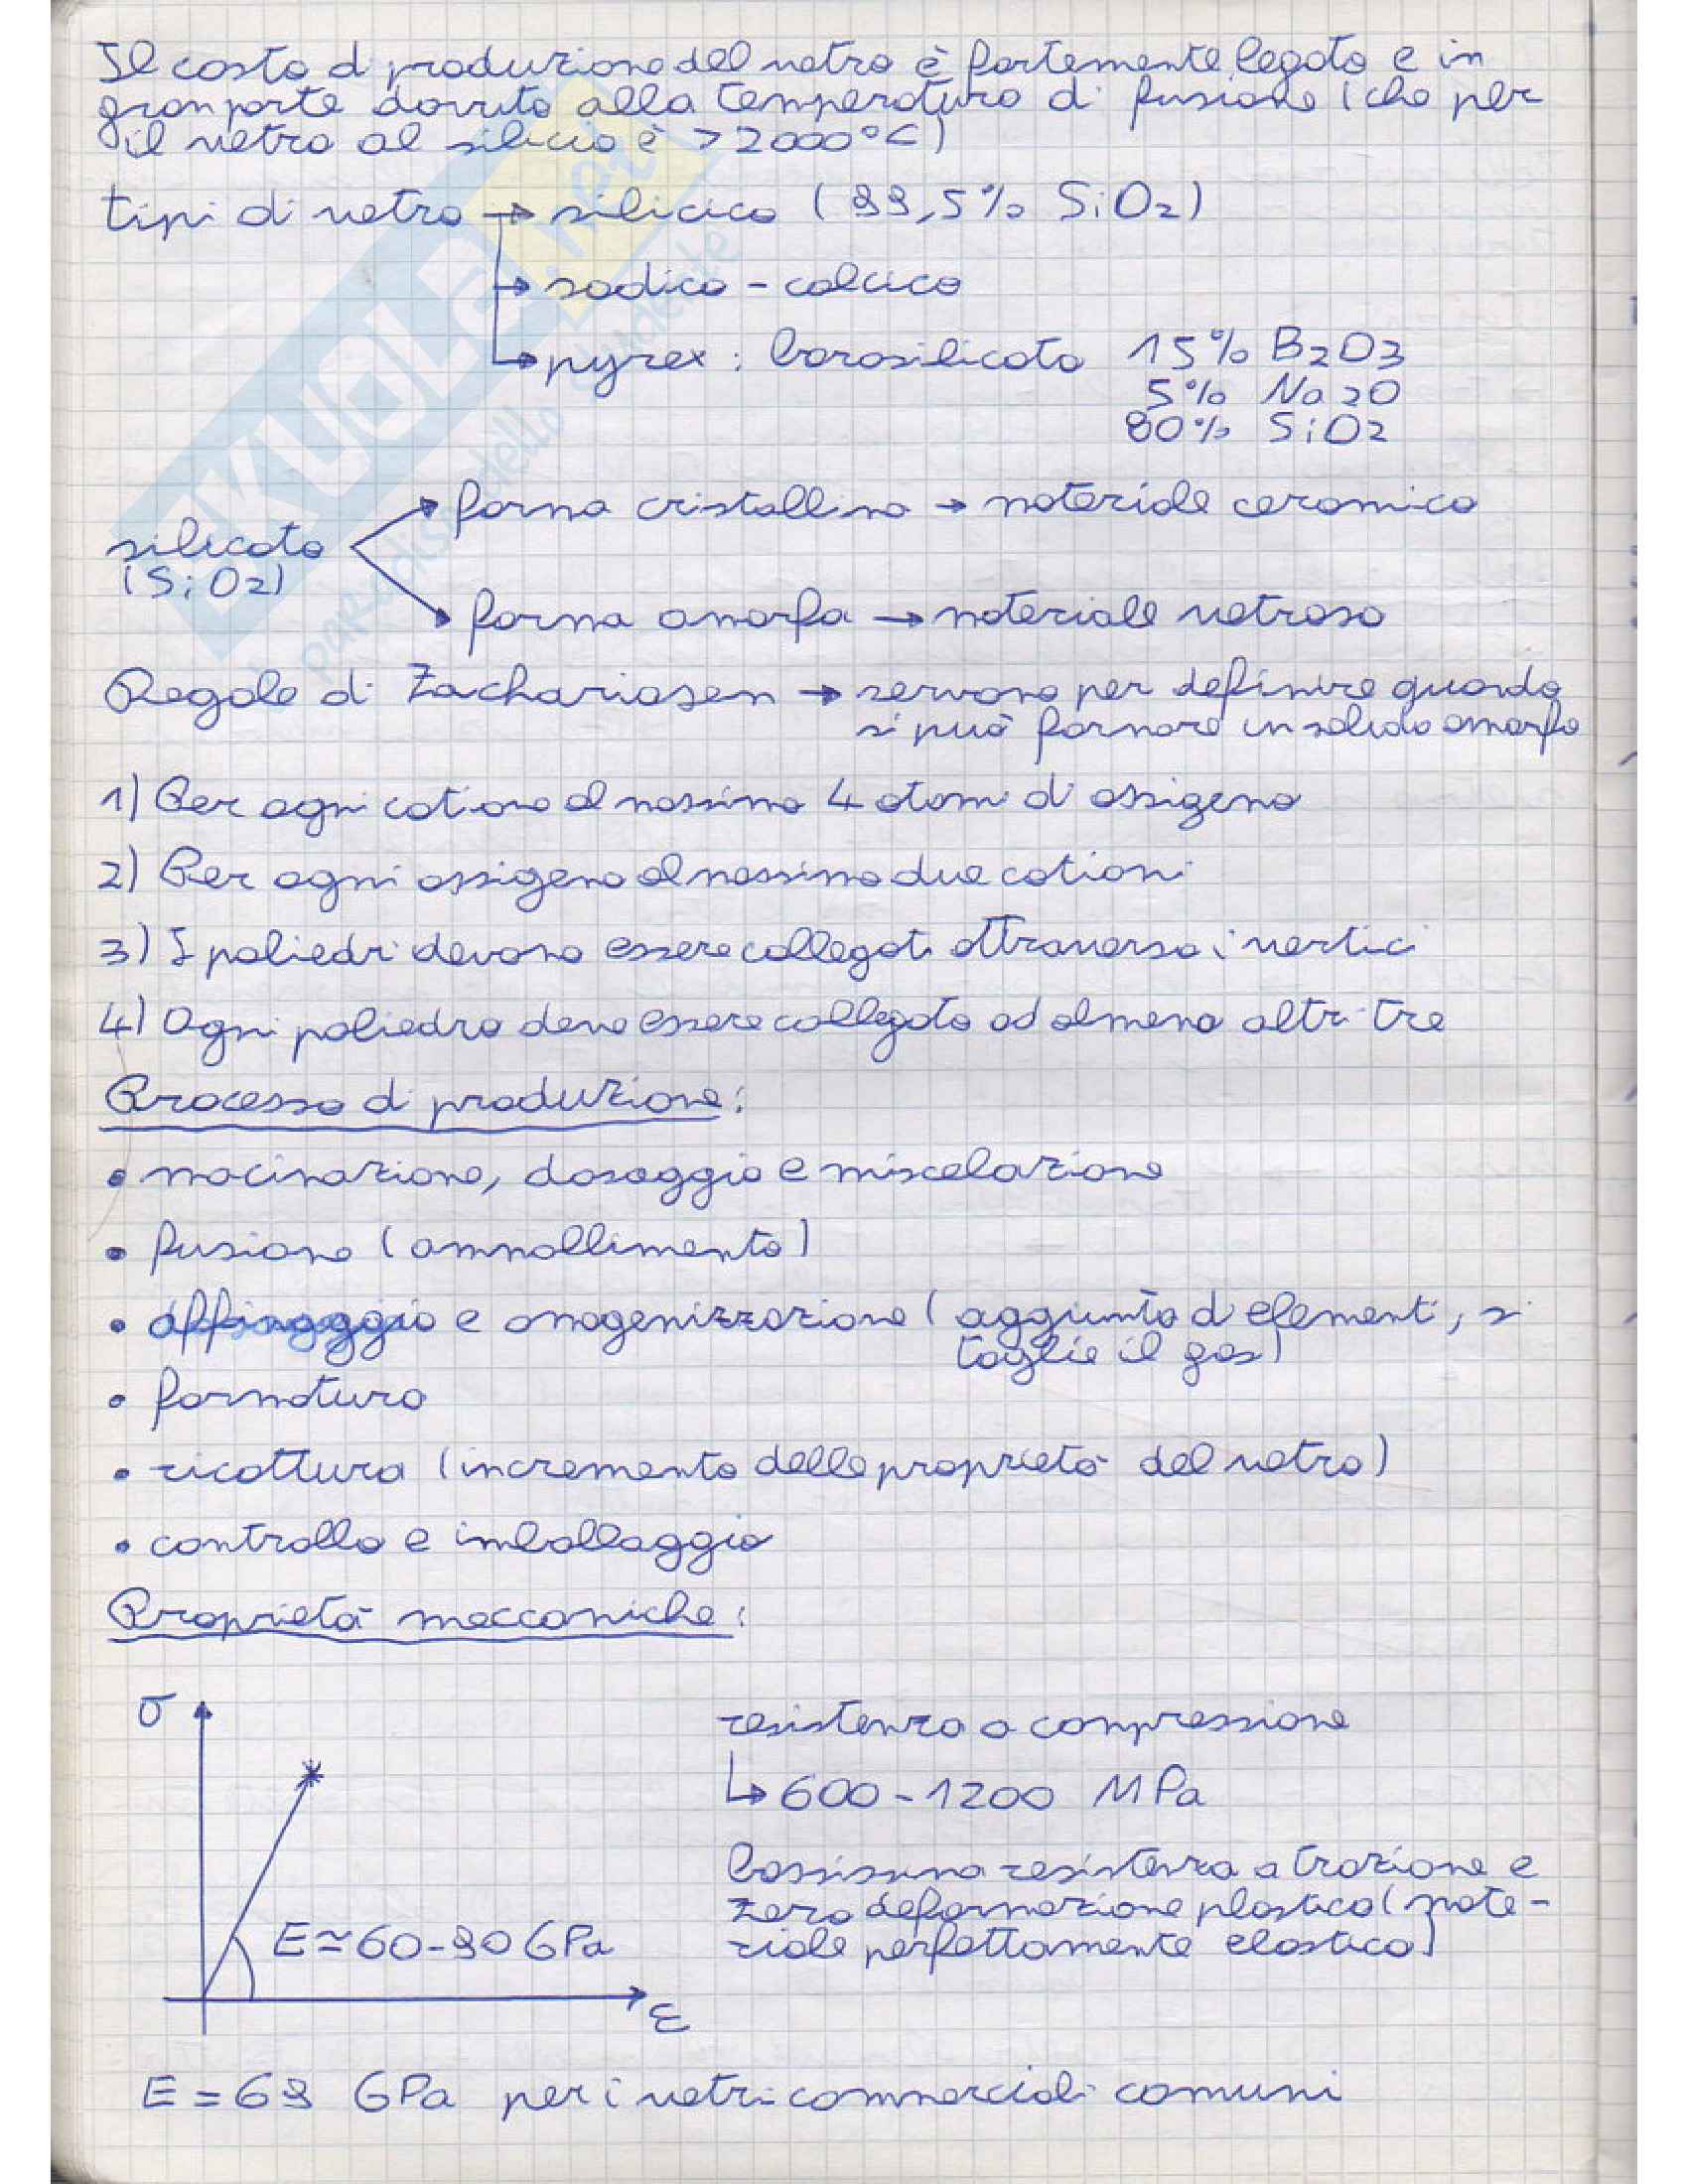 Il costo di produzione del vetro è fortemente legato e in
gran parte dovuto alla temperatura di fusione (che per
il vetro al silicio è >2000°C)
tipi di vetro → silicico (99,5% SiO2)
→ sodico - calcico
→ pyrex: borosilicato 15% B2O3
5% Na2O
80% SiO2
forma cristallina → materiale ceramico
silicato
(SiO2)
forma amorfa → materiale vetroso
Regole di Zachariasen → servono per definire quando
si può formare un solido amorfo
1) Per ogni catione al massimo 4 atomi di ossigeno
2) Per ogni ossigeno al massimo due cationi
3) I poliedri devono essere collegati attraverso i vertici
4) Ogni poliedro deve essere collegato ad almeno altri tre
Processo di produzione:
• macinazione, dosaggio e miscelazione
• fusione (ammollimento)
• affinaggio e omogenizzazione (aggiunta di elementi, si
toglie il gas)
• formatura
• ricottura (incremento delle proprietà del vetro)
• controllo e imballaggio
Proprietà meccaniche:
σ
resistenza a compressione
↳ 600-1200 MPa
bassissima resistenza a trazione e
zero deformazione plastica (mate-
riale perfettamente elastico)
E≃60-90 GPa
ε
E = 69 GPa per i vetri commerciali comuni
SKUOLA.net